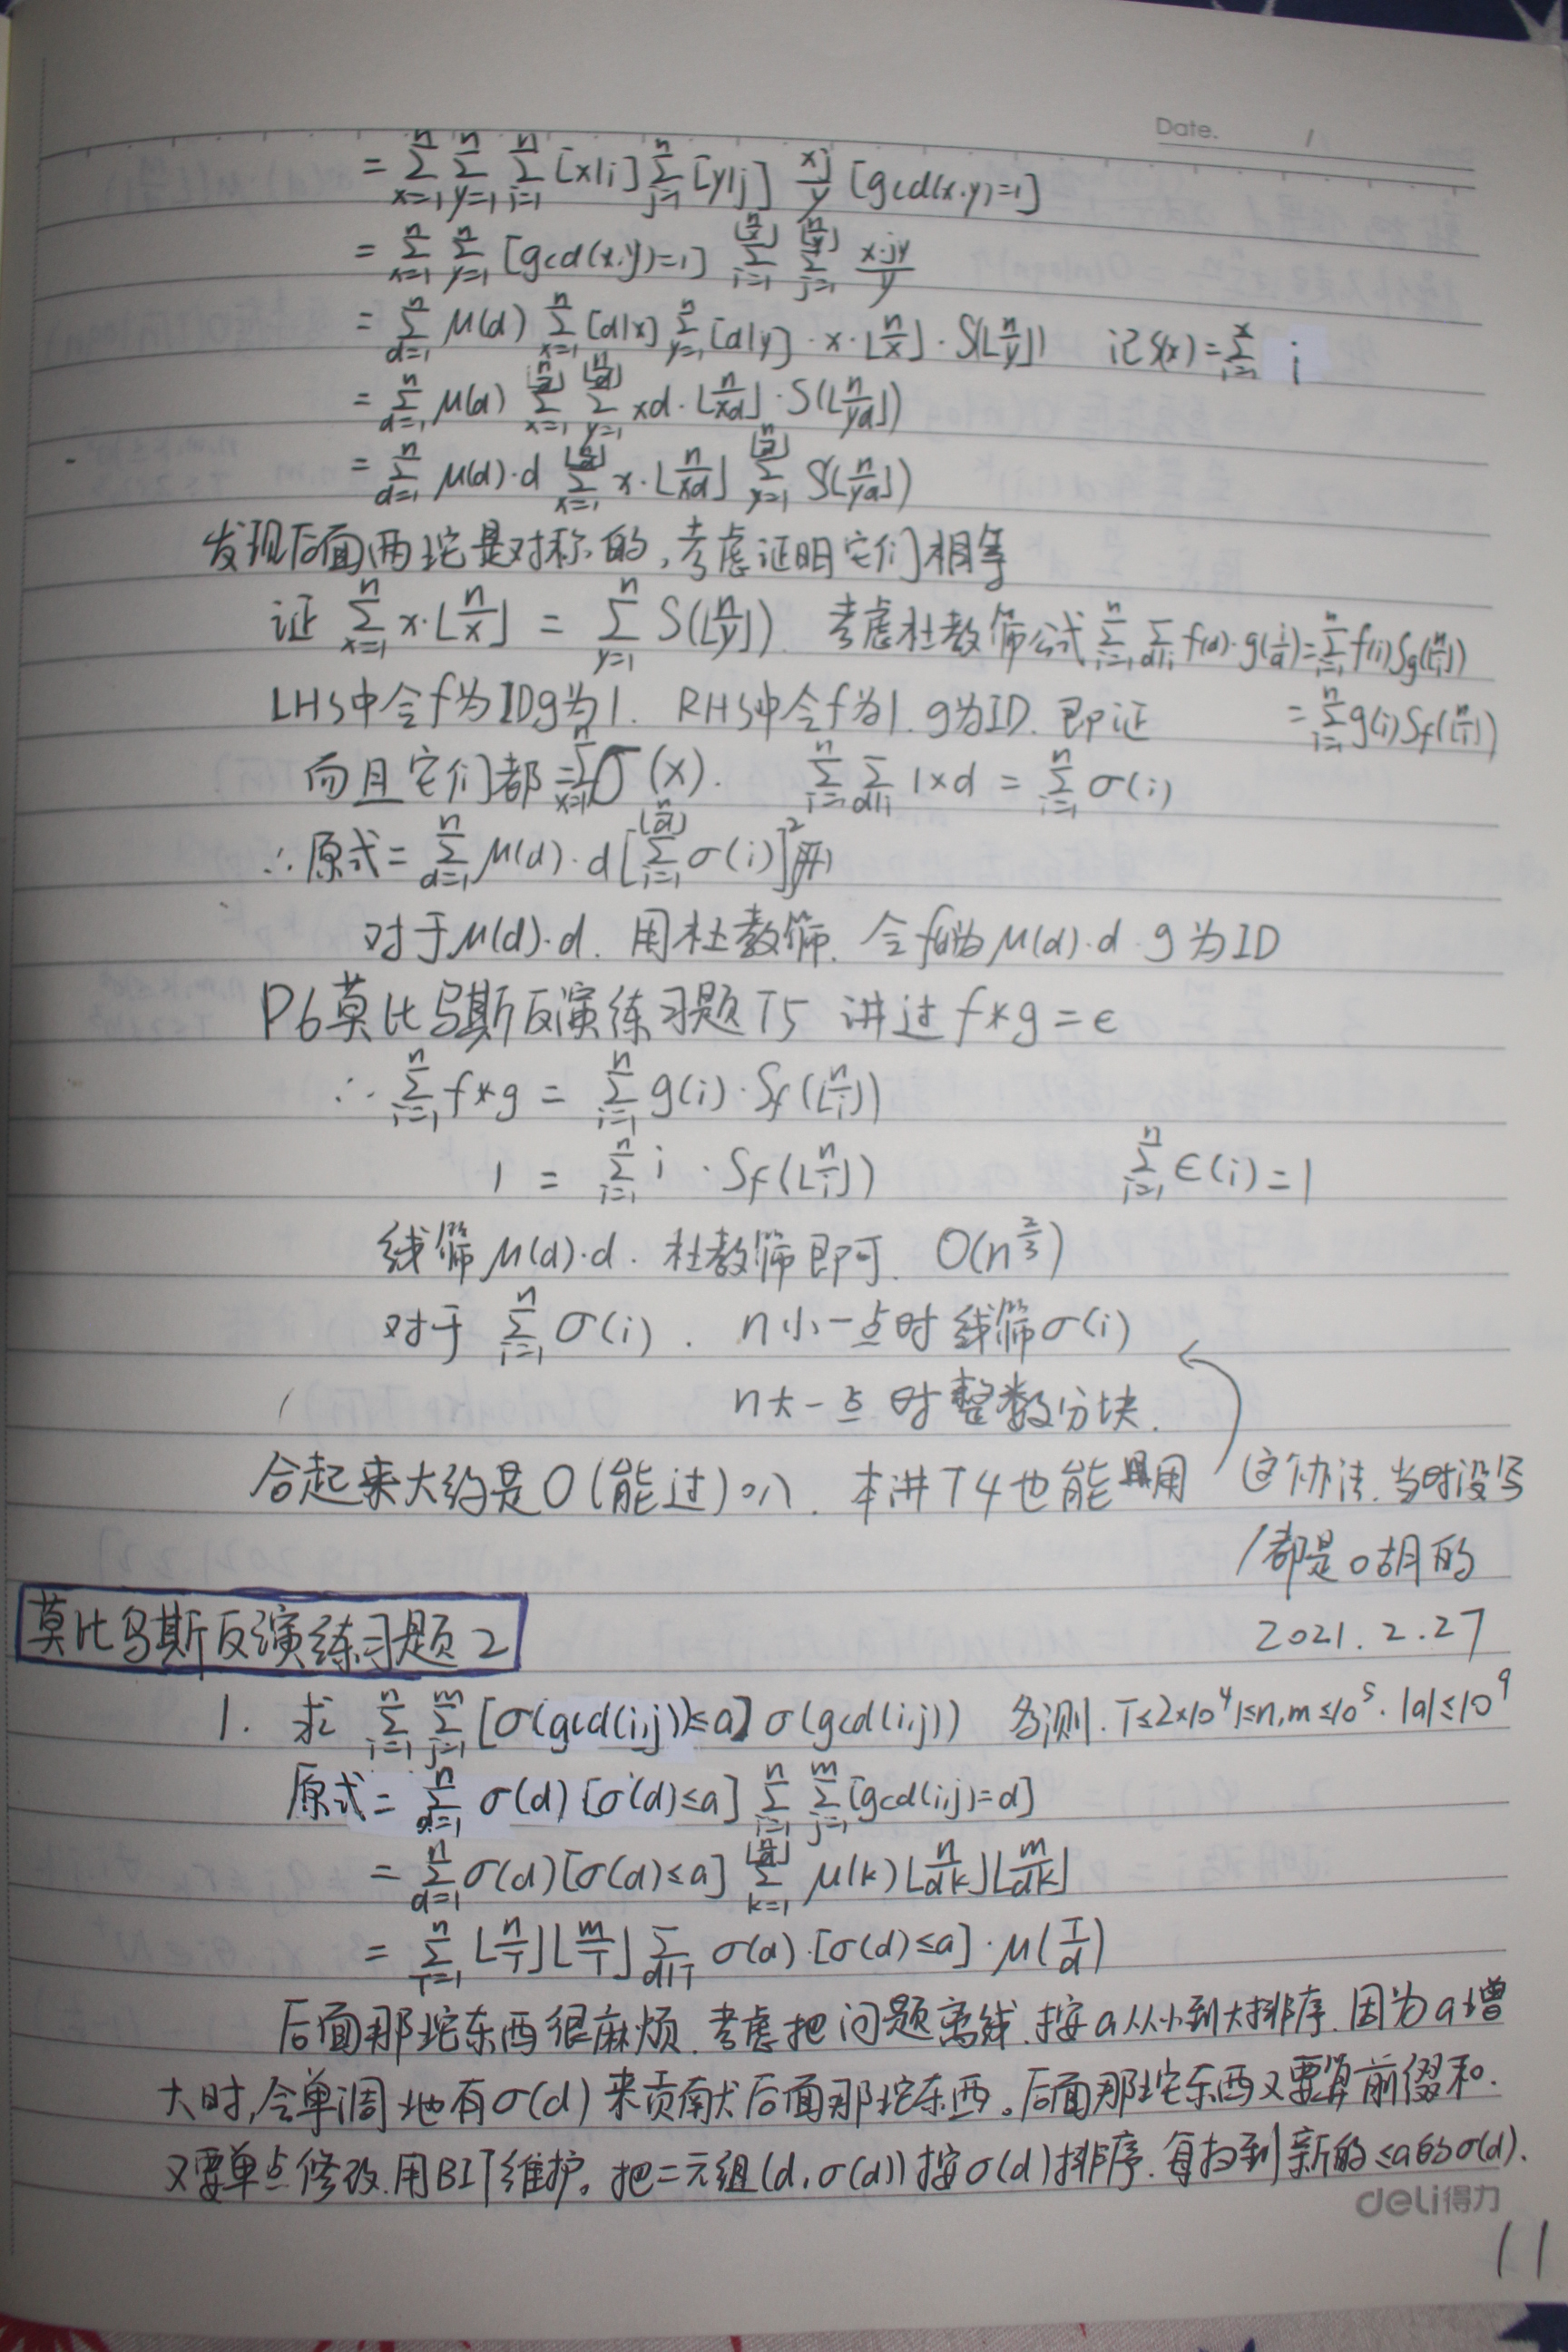 Date. /
= \sum_{x=1}^{n} \sum_{y=1}^{n} \sum_{i=1}^{n} [x|i] \sum_{j=1}^{n} [y|j] \frac{xj}{y} [gcd(x,y)=1]
= \sum_{x=1}^{n} \sum_{y=1}^{n} [gcd(x,y)=1] \sum_{i=1}^{⌊\frac{n}{x}⌋} \sum_{j=1}^{⌊\frac{n}{y}⌋} \frac{x·jy}{y}
= \sum_{d=1}^{n} μ(d) \sum_{x=1}^{n} [d|x] \sum_{y=1}^{n} [d|y] · x · ⌊\frac{n}{x}⌋ · S(⌊\frac{n}{y}⌋) 记 S(x) = \sum_{i=1}^{x} i
= \sum_{d=1}^{n} μ(d) \sum_{x=1}^{⌊\frac{n}{d}⌋} \sum_{y=1}^{⌊\frac{n}{d}⌋} xd · ⌊\frac{n}{xd}⌋ · S(⌊\frac{n}{yd}⌋)
= \sum_{d=1}^{n} μ(d)·d \sum_{x=1}^{⌊\frac{n}{d}⌋} x · ⌊\frac{n}{xd}⌋ \sum_{y=1}^{⌊\frac{n}{d}⌋} S(⌊\frac{n}{yd}⌋)
发现后面两坨是对称的,考虑证明它们相等
证 \sum_{x=1}^{n} x·⌊\frac{n}{x}⌋ = \sum_{y=1}^{n} S(⌊\frac{n}{y}⌋). 考虑杜教筛公式 \sum_{i=1}^{n} \sum_{d|i} f(d)·g(\frac{i}{d}) = \sum_{i=1}^{n} f(i) Sg(⌊\frac{n}{i}⌋)
LHS中令f为ID g为1. RHS中令f为1.g为ID. 即证 = \sum_{i=1}^{n} g(i) S_f(⌊\frac{n}{i}⌋)
而且它们都 = \sum_{x=1}^{n} σ(x). \sum_{i=1}^{n} \sum_{d|i} 1×d = \sum_{i=1}^{n} σ(i)
∴原式 = \sum_{d=1}^{n} μ(d)·d [\sum_{i=1}^{⌊\frac{n}{d}⌋} σ(i)]^2
对于μ(d)·d. 用杜教筛. 令f为μ(d)·d. g为ID
P6莫比乌斯反演练习题T5 讲过 f*g = ϵ
∴ \sum_{i=1}^{n} f*g = \sum_{i=1}^{n} g(i)·S_f(⌊\frac{n}{i}⌋)
1 = \sum_{i=1}^{n} i · S_f(⌊\frac{n}{i}⌋) \sum_{i=1}^{n} ϵ(i) = 1
线筛μ(d)·d. 杜教筛即可. O(n^{\frac{2}{3}})
对于 \sum_{i=1}^{n} σ(i). n小一点时线筛σ(i)
n大一点时整数分块.
合起来大约是O(能过)。 本讲T4也能用 这个办法.当时没写
都是口胡的
莫比乌斯反演练习题2
2021.2.27
1. 求 \sum_{i=1}^{n} \sum_{j=1}^{m} [σ(gcd(i,j))≤a] σ(gcd(i,j)) 多测. T≤2×10^4 1≤n,m≤10^5. |a|≤10^9
原式 = \sum_{d=1}^{n} σ(d) [σ(d)≤a] \sum_{i=1}^{n} \sum_{j=1}^{m} [gcd(i,j)=d]
= \sum_{d=1}^{n} σ(d) [σ(d)≤a] \sum_{k=1}^{⌊\frac{n}{d}⌋} μ(k) ⌊\frac{n}{dk}⌋⌊\frac{m}{dk}⌋
= \sum_{T=1}^{n} ⌊\frac{n}{T}⌋⌊\frac{m}{T}⌋ \sum_{d|T} σ(d)·[σ(d)≤a]·μ(\frac{T}{d})
后面那坨东西很麻烦.考虑把问题离线.按a从小到大排序.因为a增
大时,会单调地有σ(d)来贡献后面那坨东西。后面那坨东西又要算前缀和.
又要单点修改.用BIT维护。把二元组(d,σ(d))按σ(d)排序.每扫到新的≤a的σ(d).
deli得力
11